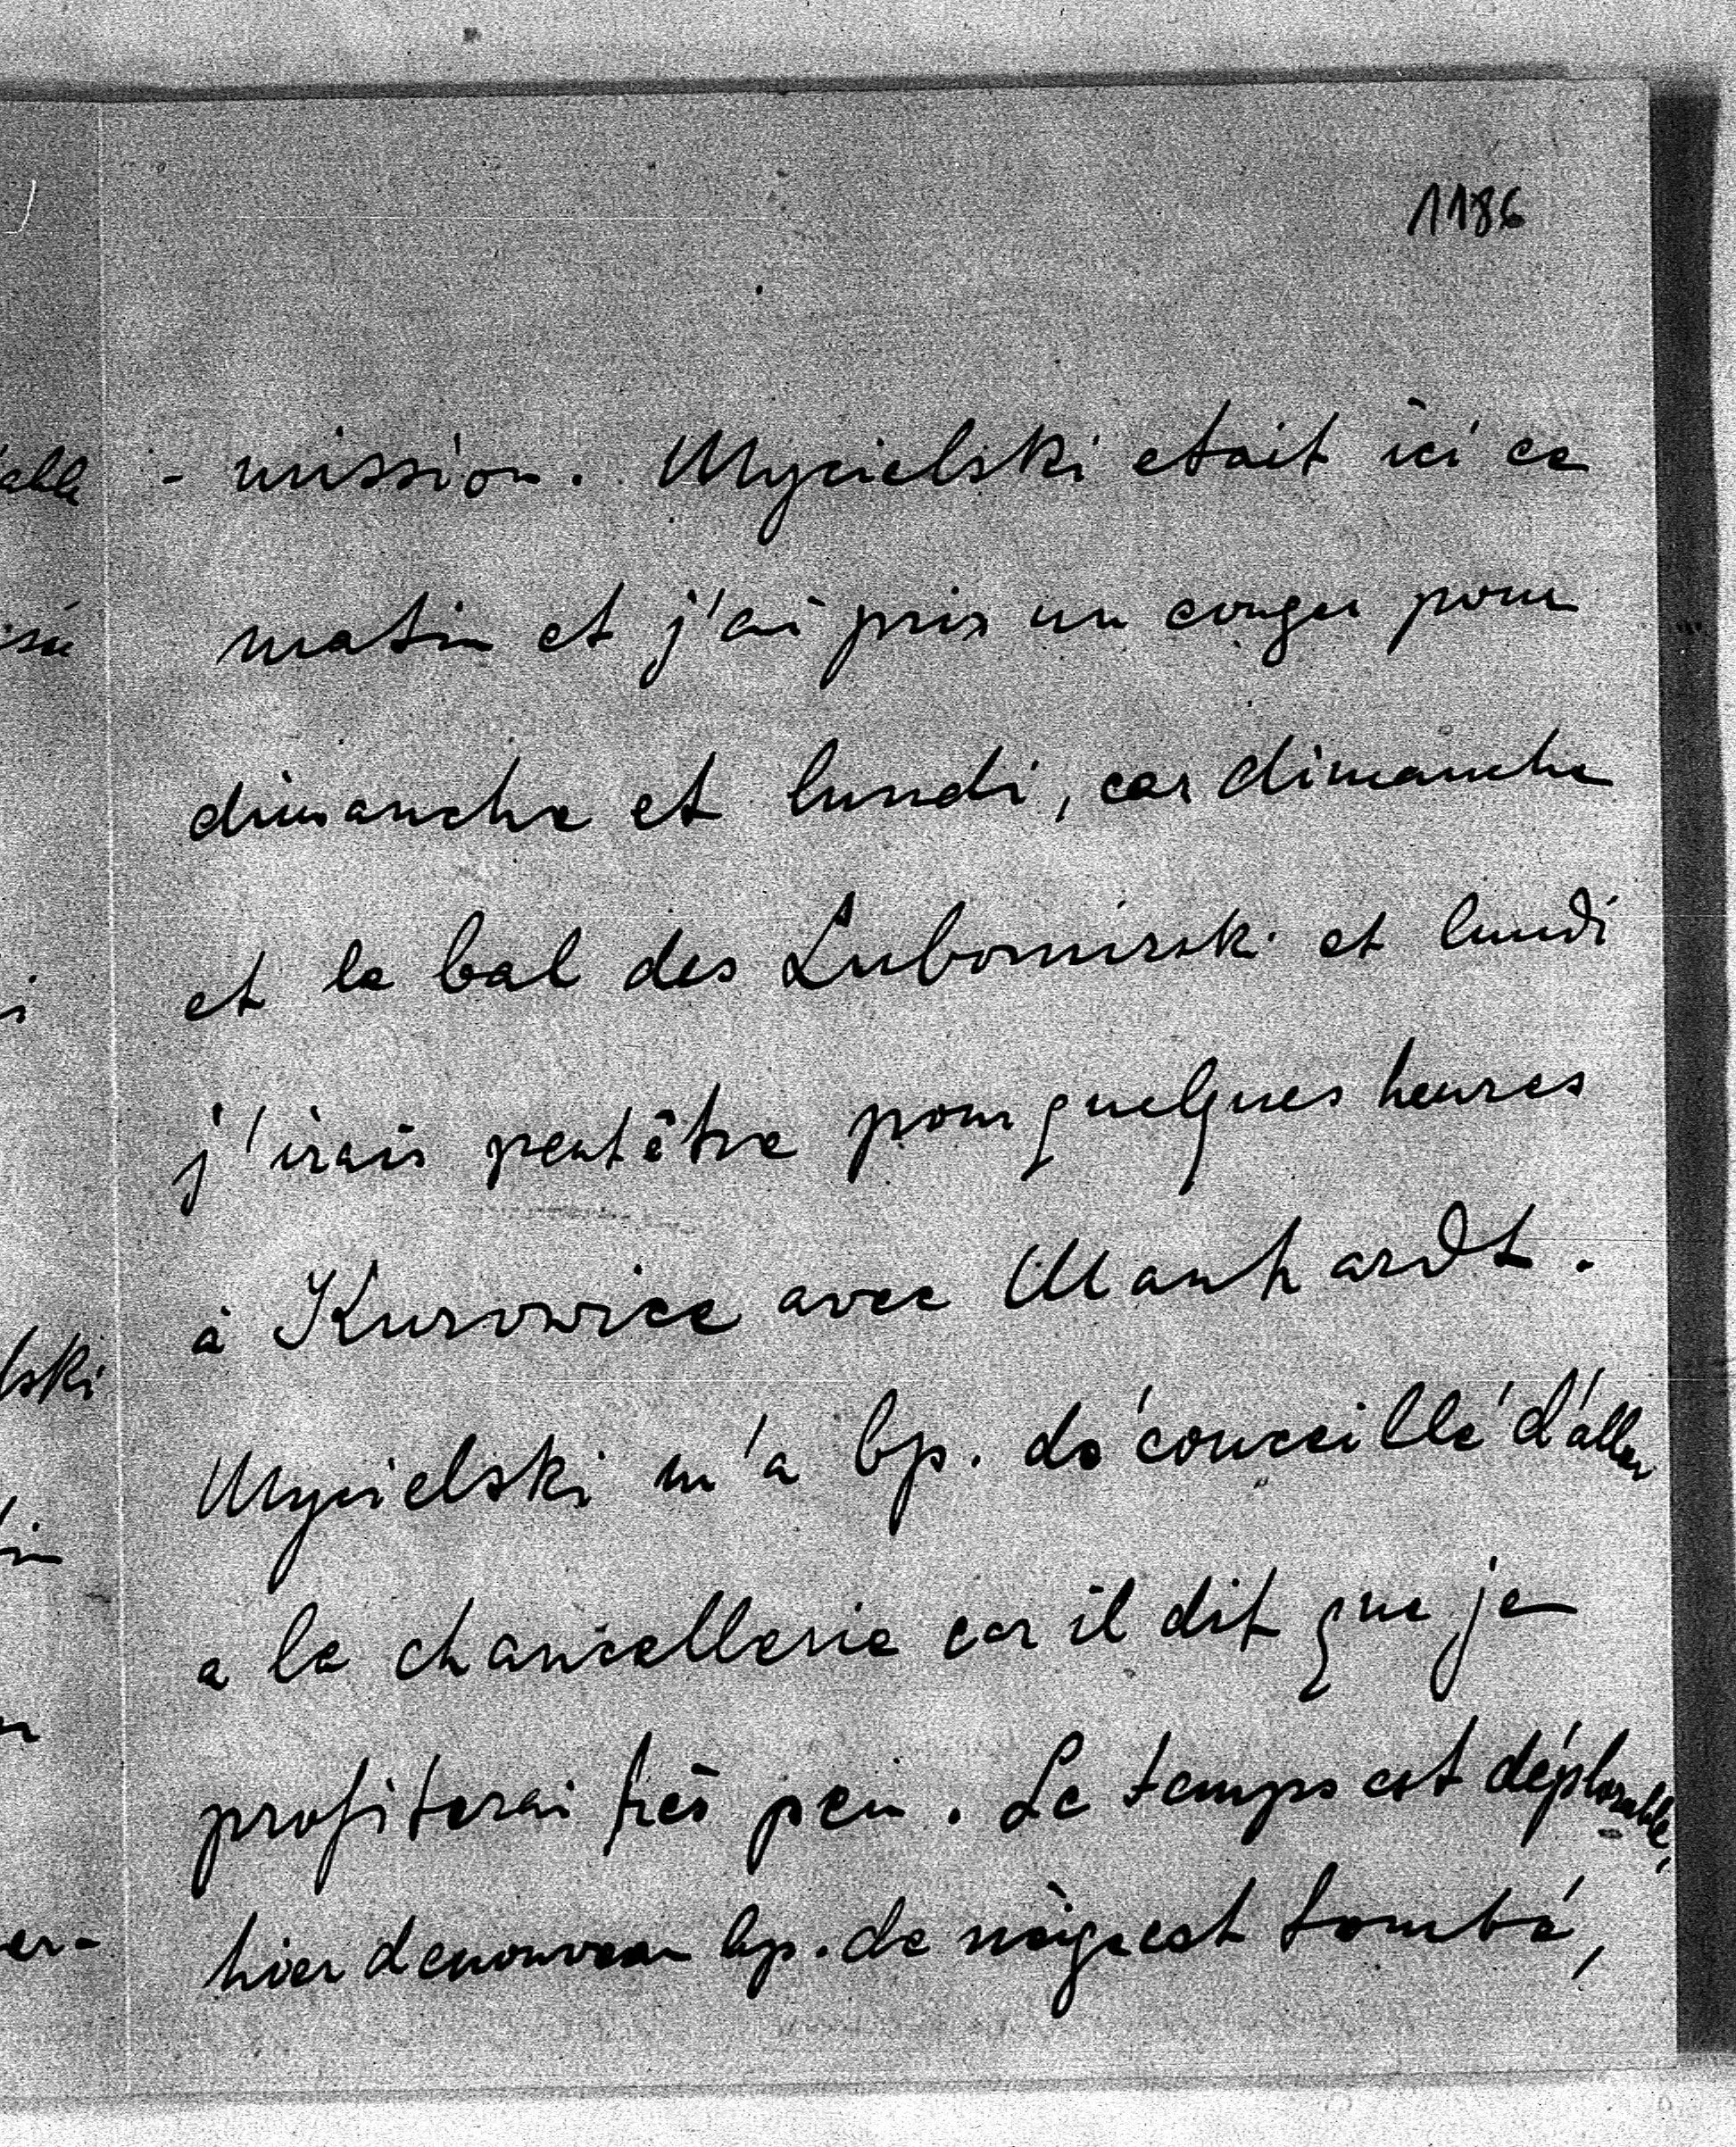 1186
- mission. Mycielski etait ici ce
matin et j'ai pris un conger pour
dimanche et lundi, car dimanche
et le bal des Lubomirski et lundi
j'irais peutêtre pour quelques heures
à Kurowice avec Manhardt.
Mycielski m'a bp. déconceillé d'aller
a la chancellerie car il dit que je
profiterai très peu. Le temps est déplorable,
hier denouveau bp. de nèige est tombé,